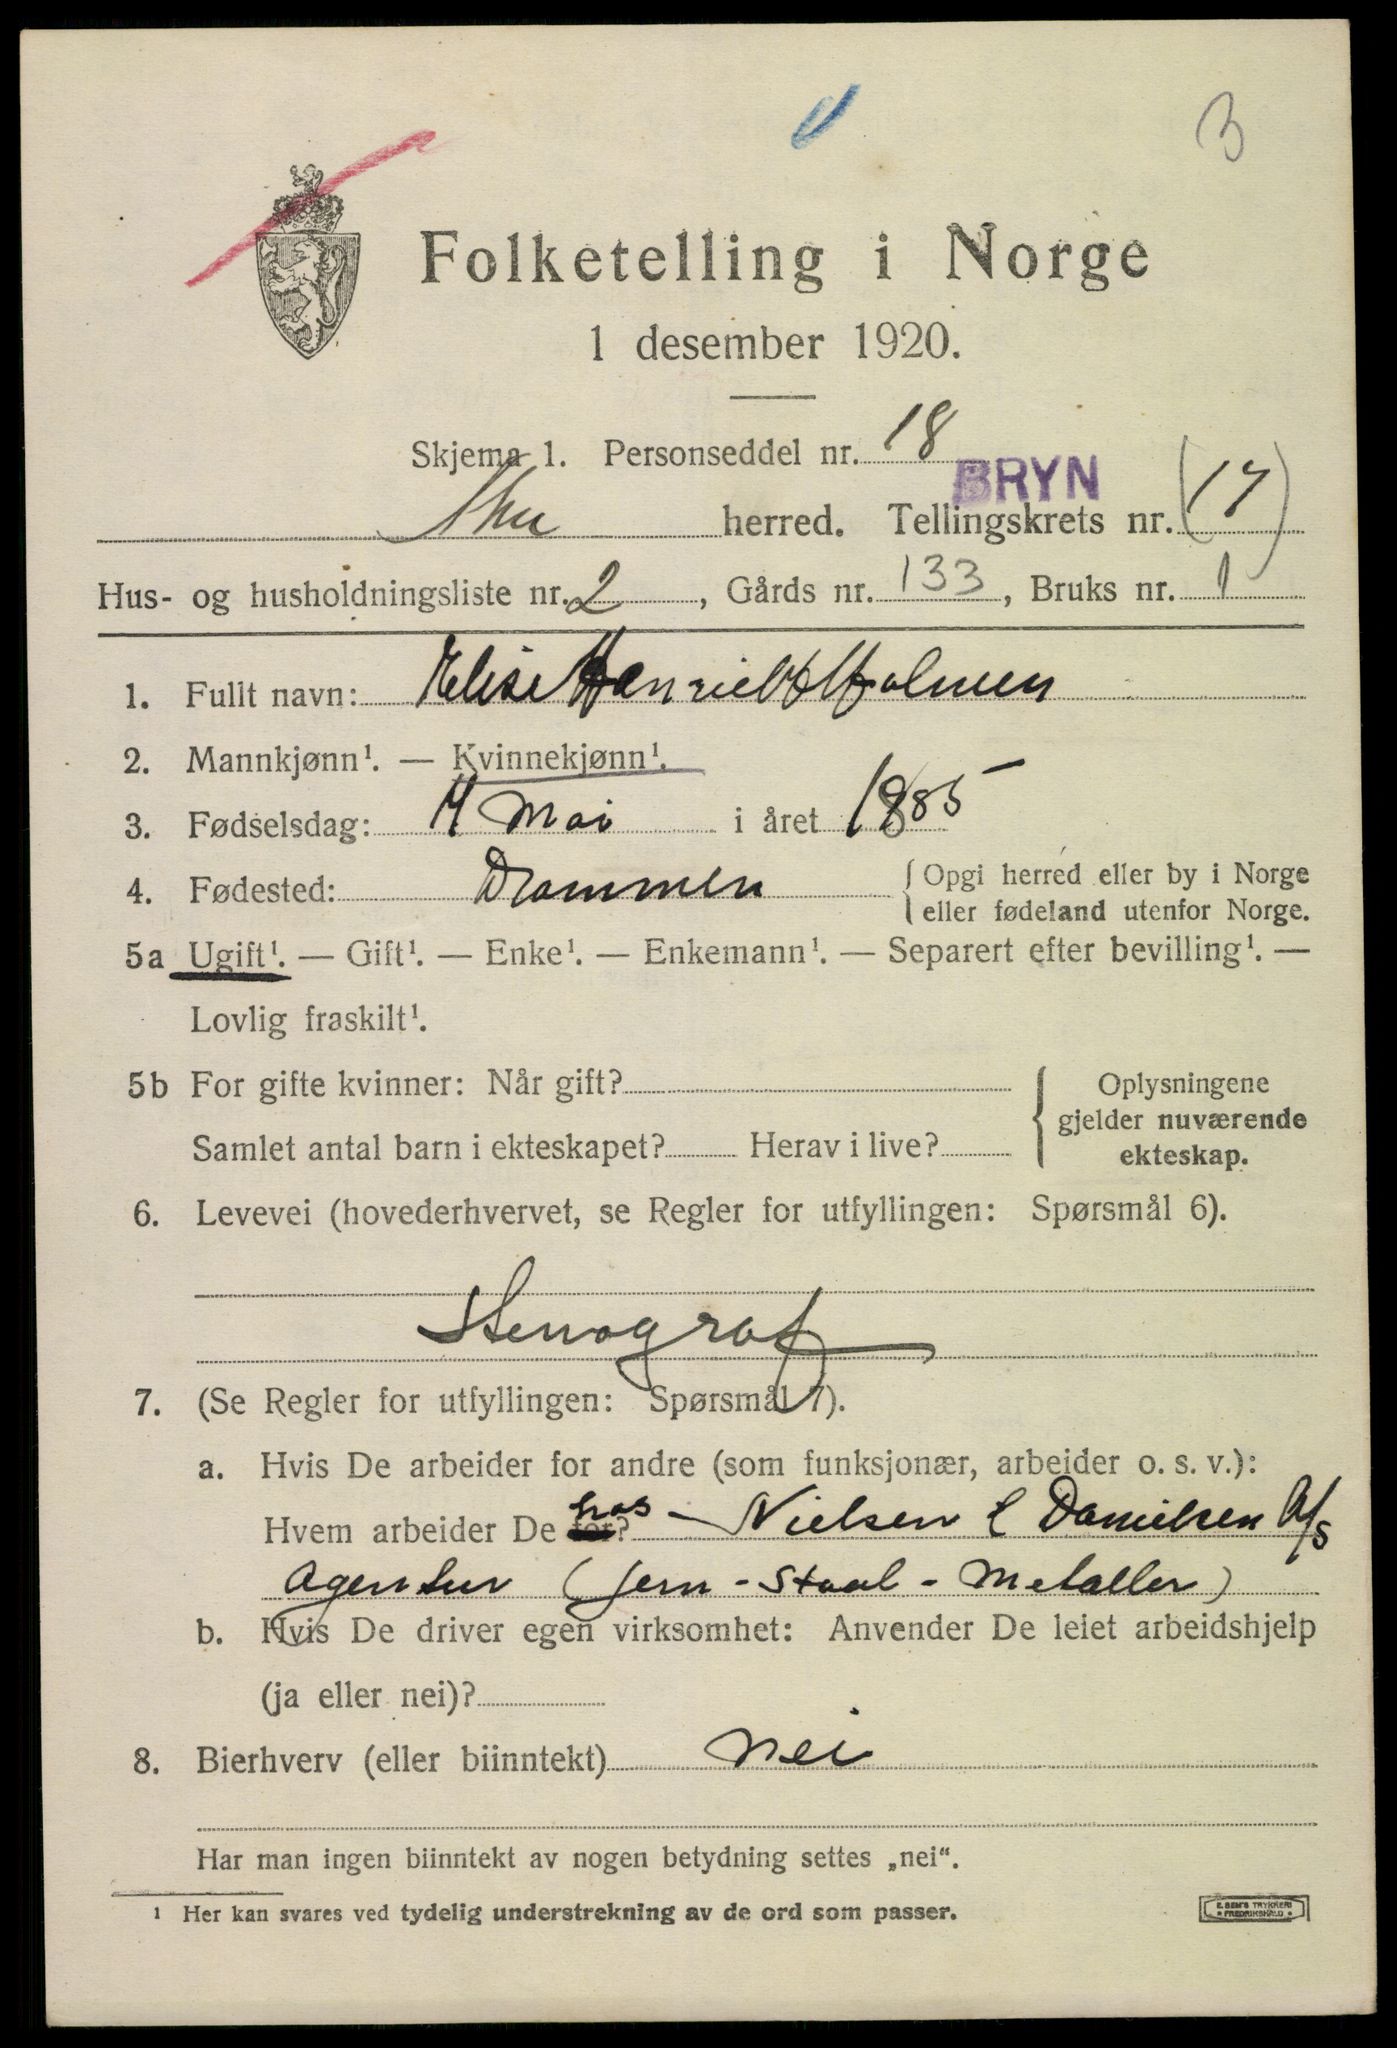 3
Folketelling i Norge
1 desember 1920.
Skjema 1. Personseddel nr. 18
BRYN
Aker herred. Tellingskrets nr. (17)
Hus- og husholdningsliste nr. 2, Gårds nr. 133, Bruks nr. 1
1. Fullt navn: Elise Henriette Holmen
2. Mannkjønn¹. — Kvinnekjønn¹.
3. Fødselsdag: Mai i året 1885
4. Fødested: Drammen { Opgi herred eller by i Norge
eller fødeland utenfor Norge.
5a Ugift¹. — Gift¹. — Enke¹. — Enkemann¹. — Separert efter bevilling¹. —
Lovlig fraskilt¹.
5b For gifte kvinner: Når gift? { Oplysningene
gjelder nuværende
Samlet antal barn i ekteskapet? Herav i live? ekteskap.
6. Levevei (hovederhvervet, se Regler for utfyllingen: Spørsmål 6).
Stenograf
7. (Se Regler for utfyllingen: Spørsmål 7).
a. Hvis De arbeider for andre (som funksjonær, arbeider o. s. v.):
Hvem arbeider De for? hos - Nielsen & Danielsen A/S
Agentur (jern - Staal - Metaller)
b. Hvis De driver egen virksomhet: Anvender De leiet arbeidshjelp
(ja eller nei)?
8. Bierhverv (eller biinntekt) Nei
Har man ingen biinntekt av nogen betydning settes „nei“.
¹ Her kan svares ved tydelig understrekning av de ord som passer.
E. SEM'S TRYKKERI
FREDRIKSHALD